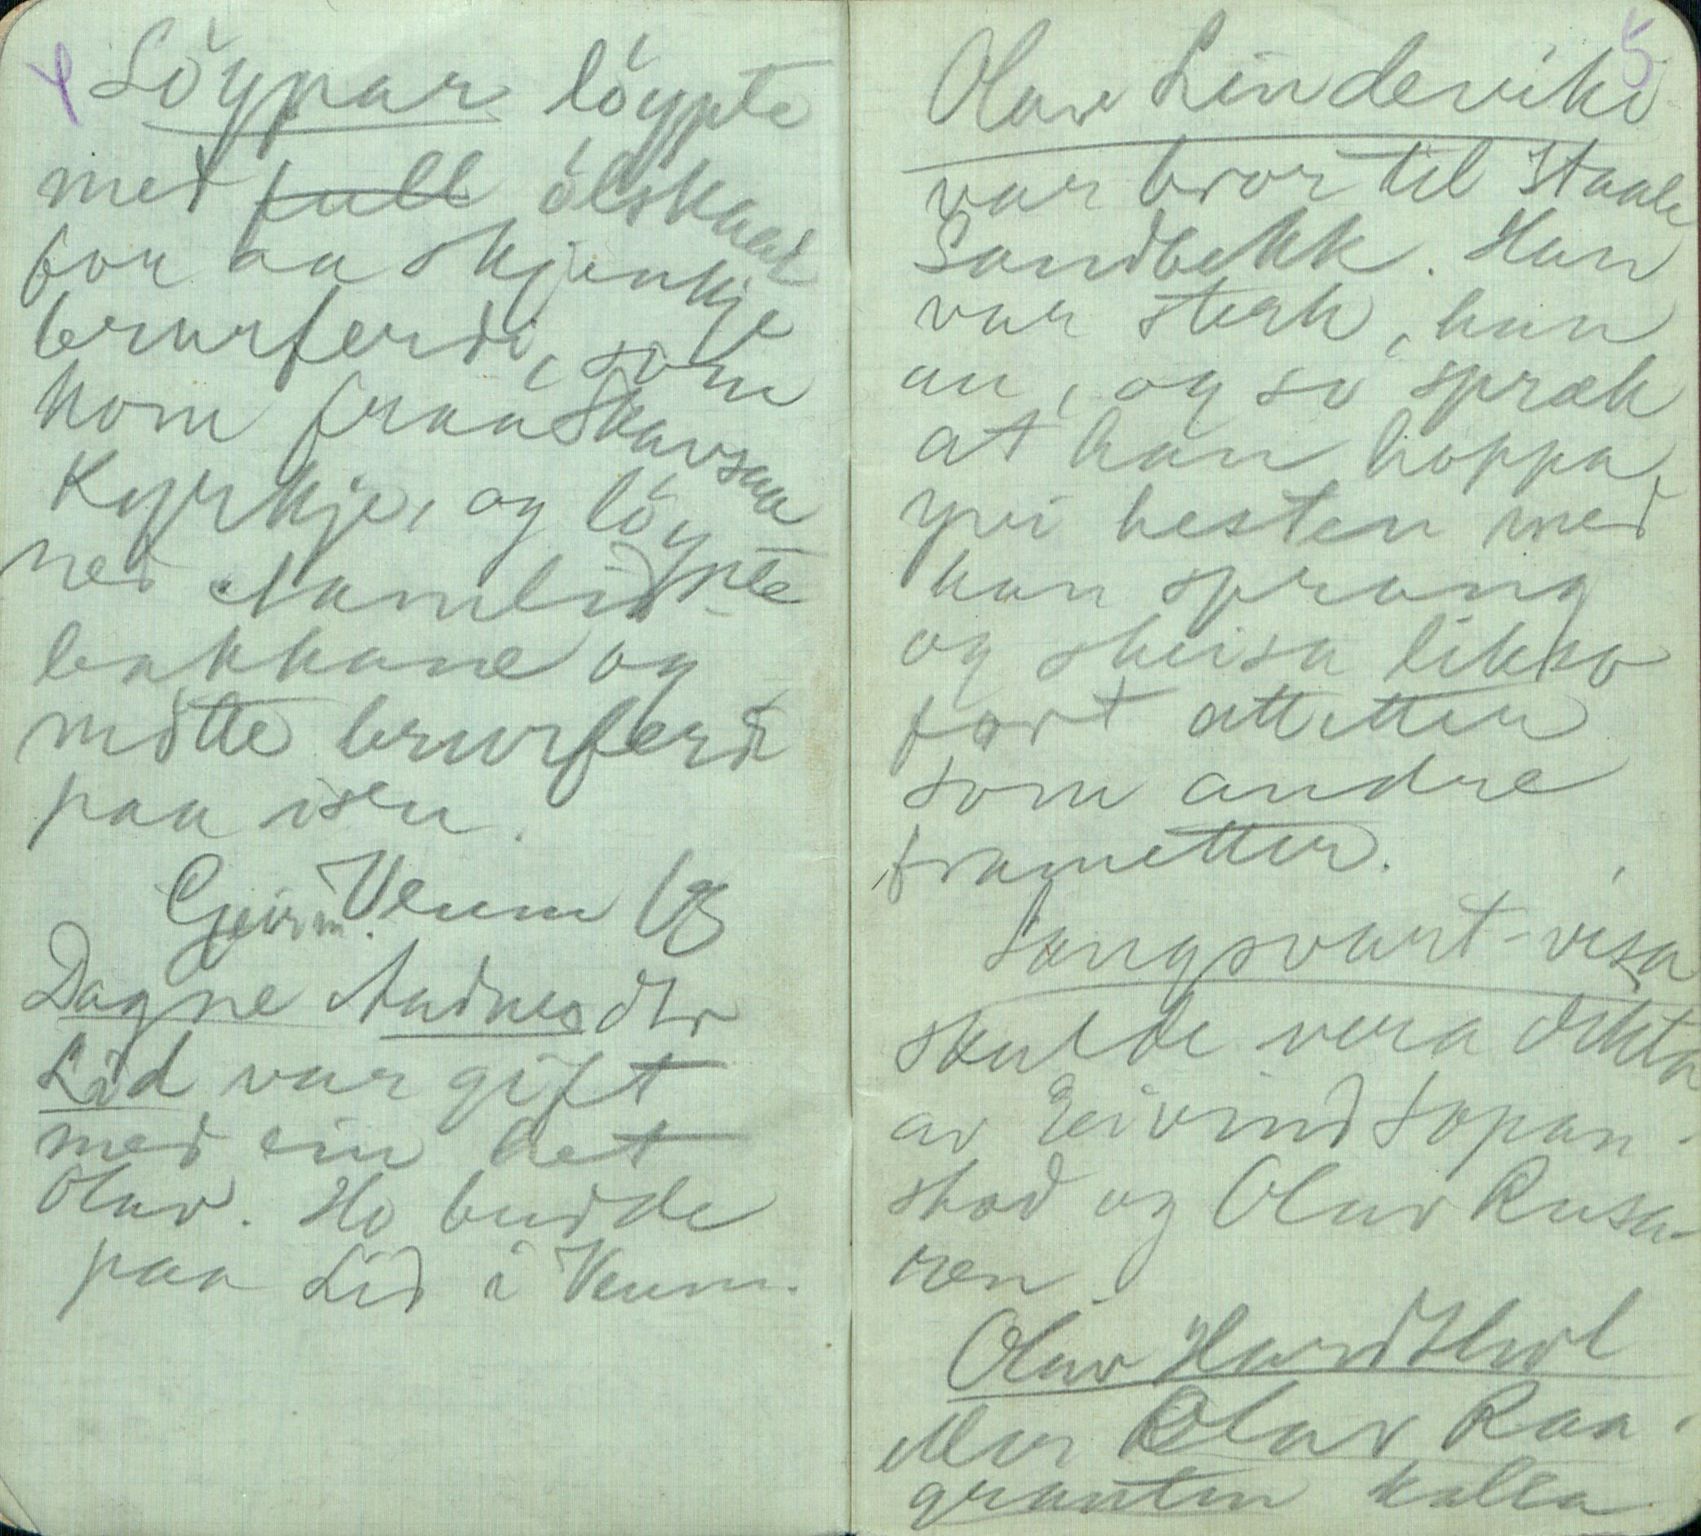 4
Löypar löypte
med full ölskaal
for aa skjenkje
brurferdi, som
kom fraa Skavsaa
Kyrkje, og löypte
ned Aamlid
bakkane og
mötte brurferdi
paa isen.
Geirm. Veum
Dagne Audnesdtr
Lid var gift
med ein het
Olav. Ho budde
paa Lid i Veum.
5
Olav Lindeviki
var bror til Staale
Sandbekk. Han
var sterk, han
au, og so spræk
at han hoppa
yvi hesten med
han sprang
og skeisa likso
fort attetter
som andre
frametter.
Langsvart-visa
skulde vera dikta
av Eivind Sopan-
skod og Olav Rusa-
ren.
Olav
eller Olav Raa-
granten kalla